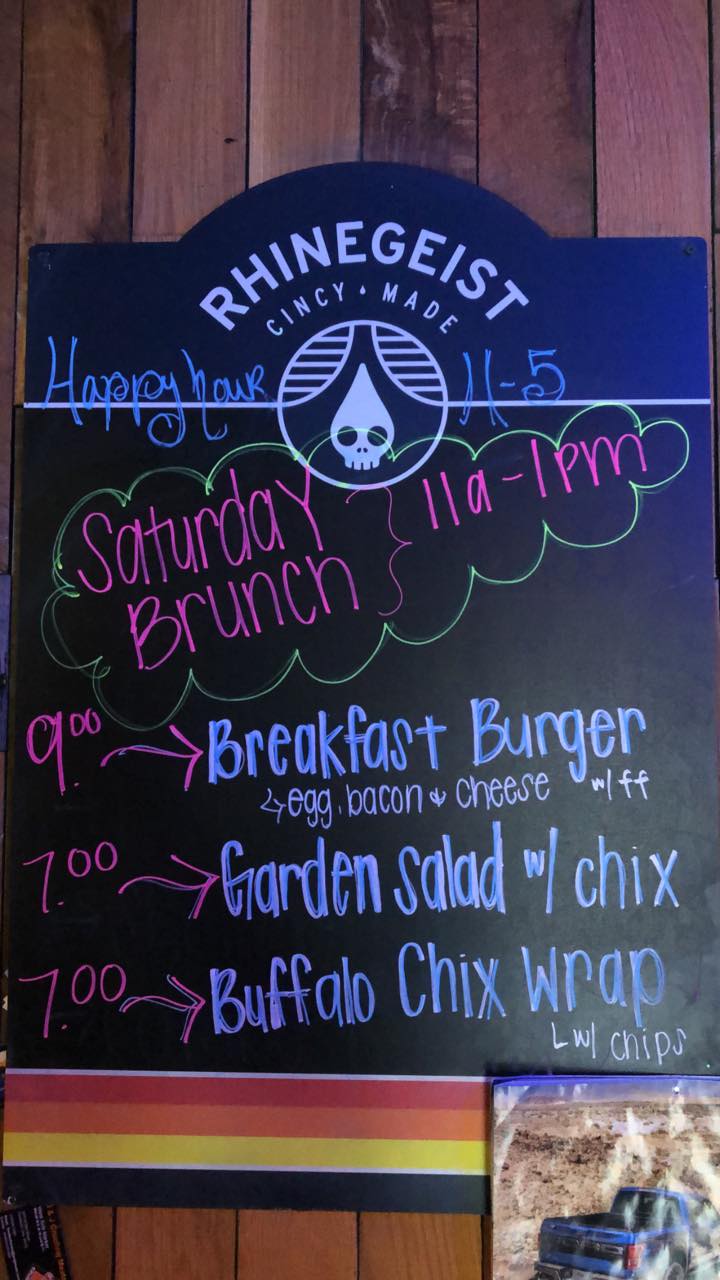 RHINEGEIST
CINCY · MADE
Happy hour 11-5
Saturday Brunch } 11a-1pm
9.00 → Breakfast Burger
↳ egg, bacon & cheese w/ ff
7.00 → Garden Salad w/ chix
7.00 → Buffalo Chix Wrap
L w/ chips